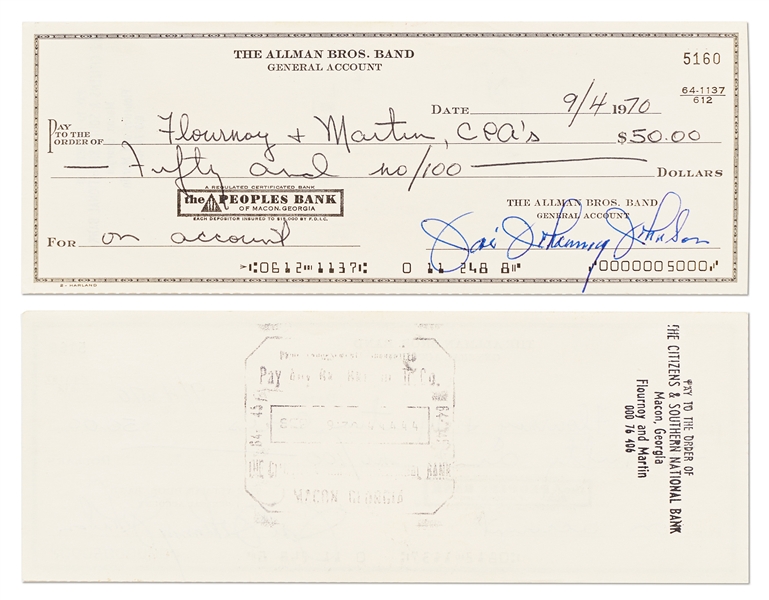 THE ALLMAN BROS. BAND
GENERAL ACCOUNT
5160
64-1137
612
DATE 9/4 1970
PAY TO THE ORDER OF Flournoy & Martin, CPA's $50.00
Fifty and no/100 DOLLARS
A REGULATED CERTIFICATED BANK
the PEOPLES BANK
OF MACON, GEORGIA
EACH DEPOSITOR INSURED TO $15,000 BY F.D.I.C.
THE ALLMAN BROS. BAND
GENERAL ACCOUNT
FOR on account
Johnny Johnson
⑆0612⑉1137⑆ 0 11 248 8⑈ ⑈0000005000⑈
HARLAND
Pay Any
MACON GEORGIA
PAY TO THE ORDER OF
THE CITIZENS & SOUTHERN NATIONAL BANK
Macon, Georgia
Flournoy and Martin
000 76 406